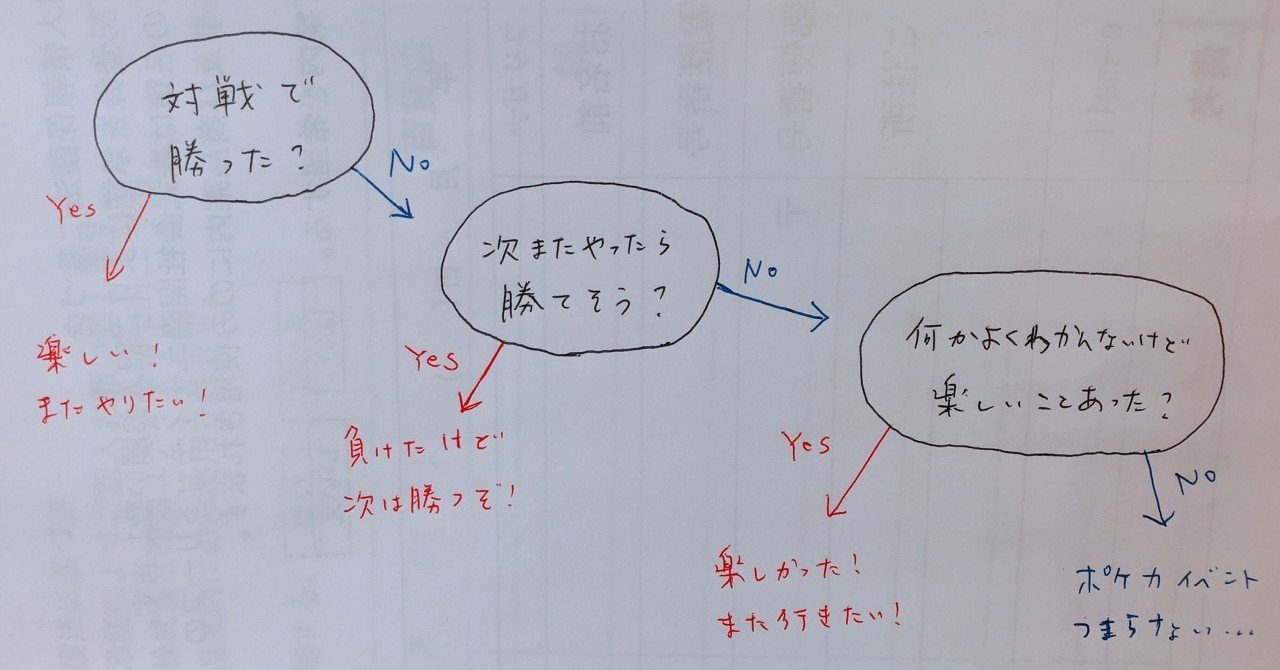 対戦で
勝った？
No
Yes
楽しい！
またやりたい！
次またやったら
勝てそう？
No
Yes
負けたけど
次は勝つぞ！
何かよくわかんないけど
楽しいことあった？
Yes
No
楽しかった！
また行きたい！
ポケカイベント
つまらない…